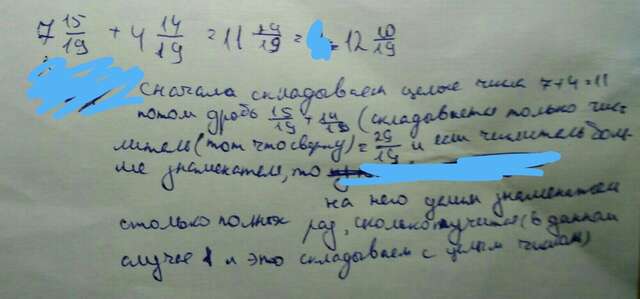 7 15/19 + 4 14/19 = 11 29/19 = = 12 10/19
Сначала складываем целые числа 7+4=11
потом дробь 15/19 + 14/19 (складывается только чис-
литель (тот что сверху) = 29/19 и если числитель боль-
ше знаменателя, то
на него делим знаменателем
столько полных раз, сколько получится (в данном
случае 1 и это складываем с целым числом)